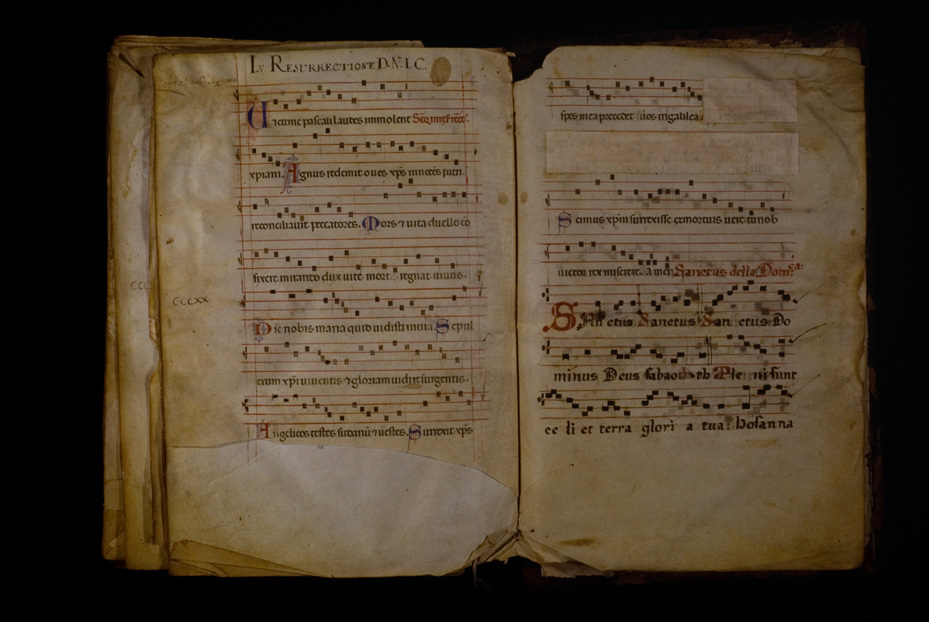 IN RESURRECTIONE D.N.I.C.
Uictime pascali laudes immolent
xpiani. Agnus redemit oues xps innocēs patri
reconciliauit peccatores. Mors ⁊ uita duello co
flixere mirando dux uite mort regnat uiuus.
CCCXX
Dic nobis maria quid uidisti inuia. Sepul
crum xpi uiuentis ⁊ gloriam uidi resurgentis.
Angelicos testes sudariū ⁊ uestes. Surrexit xps
spes mea precedet uos in galilea
Scimus xpm surrexisse exmortuis ueretunob
uictor rex miserere. amen Sanctus della Domca
San ctus Sanctus San ctus Do
minus Deus sabaoth Ple ni sunt
ce li et terra glori a tua: hosanna